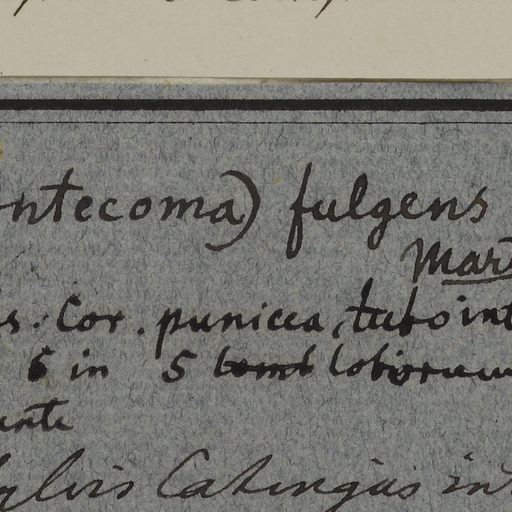 ntecoma) fulgens
Mart
s. Cor. punicea, tubo int
6 in 5 loborum
ante
sylvis Catingas in